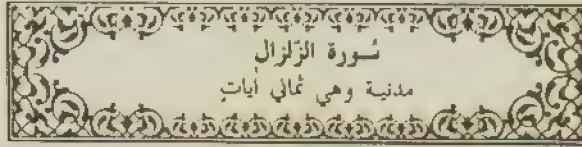 سورة الزلزال
مدنية وهي ثماني أيات